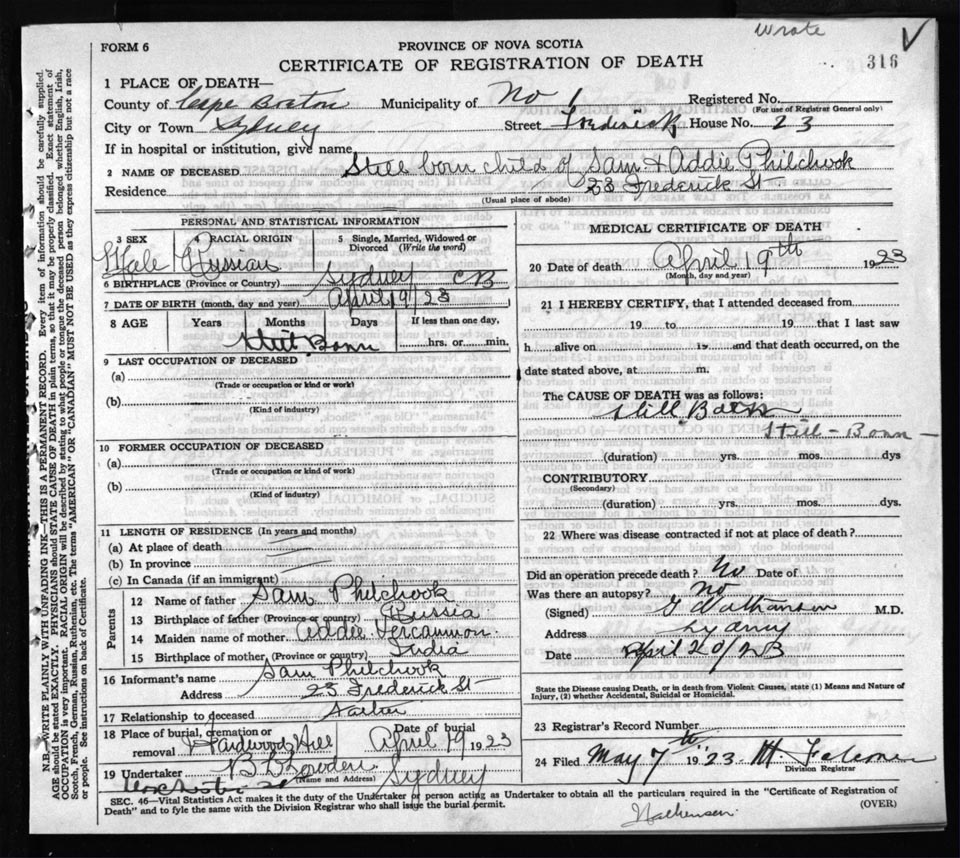 Wrote
FORM 6
PROVINCE OF NOVA SCOTIA
316
CERTIFICATE OF REGISTRATION OF DEATH
1 PLACE OF DEATH—
County of Cape Breton Municipality of No Registered No.
(For use of Registrar General only)
City or Town Sydney Street Frederick House No. 23
If in hospital or institution, give name
2 NAME OF DECEASED Still born child of Sam & Addie Philchook
Residence 23 Frederick St
(Usual place of abode)
PERSONAL AND STATISTICAL INFORMATION
3 SEX RACIAL ORIGIN 5 Single, Married, Widowed or Divorced (Write the word)
Male Russian
6 BIRTHPLACE (Province or Country) Sydney CB
7 DATE OF BIRTH (month, day and year) April 19/23
8 AGE Years Months Days If less than one day,
Still Born hrs. or min.
9 LAST OCCUPATION OF DECEASED
(a)
(Trade or occupation or kind or work)
(b)
(Kind of industry)
10 FORMER OCCUPATION OF DECEASED
(a)
(Trade or occupation or kind of work)
(b)
(Kind of industry)
11 LENGTH OF RESIDENCE (In years and months)
(a) At place of death
(b) In province
(c) In Canada (if an immigrant)
Parents
12 Name of father Sam Philchook
13 Birthplace of father (Province or country) Russia
14 Maiden name of mother Addie
15 Birthplace of mother (Province or country) India
16 Informant's name Sam Philchook
Address 23 Frederick St
17 Relationship to deceased
18 Place of burial, cremation or removal Hardwood Hill Date of burial April 19 1923
19 Undertaker
(Name and Address)
Sydney
MEDICAL CERTIFICATE OF DEATH
20 Date of death April 19th 1923
(Month, day and year)
21 I HEREBY CERTIFY, that I attended deceased from
19 to 19 that I last saw
h alive on 19 and that death occurred, on the
date stated above, at m.
The CAUSE OF DEATH was as follows:
Still Born
Still-Born
(duration) yrs. mos. dys
CONTRIBUTORY
(Secondary)
(duration) yrs. mos. dys.
22 Where was disease contracted if not at place of death?
Did an operation precede death? No Date of
Was there an autopsy? No
(Signed) M.D.
Address Sydney
Date April 20/23
State the Disease causing Death, or in death from Violent Causes, state (1) Means and Nature of
Injury, (2) whether Accidental, Suicidal or Homicidal.
23 Registrar's Record Number
24 Filed May 7th 1923
Division Registrar
SEC. 46—Vital Statistics Act makes it the duty of the Undertaker or person acting as Undertaker to obtain all the particulars required in the "Certificate of Registration of
Death" and to fyle the same with the Division Registrar who shall issue the burial permit.
(OVER)
N.B.—WRITE PLAINLY WITH UNFADING INK—THIS IS A PERMANENT RECORD. Every item of information should be carefully supplied.
AGE should be stated EXACTLY. PHYSICIANS should STATE CAUSE OF DEATH in plain terms, so that it may be properly classified. Exact statement of
OCCUPATION is very important. RACIAL ORIGIN will be described by stating to what people or tongue the deceased person belonged whether English, Irish,
Scotch, French, German, Russian, Ruthenian, etc. The terms "AMERICAN" OR "CANADIAN" MUST NOT BE USED as they express citizenship but not a race
or people. See instructions on back of Certificate.